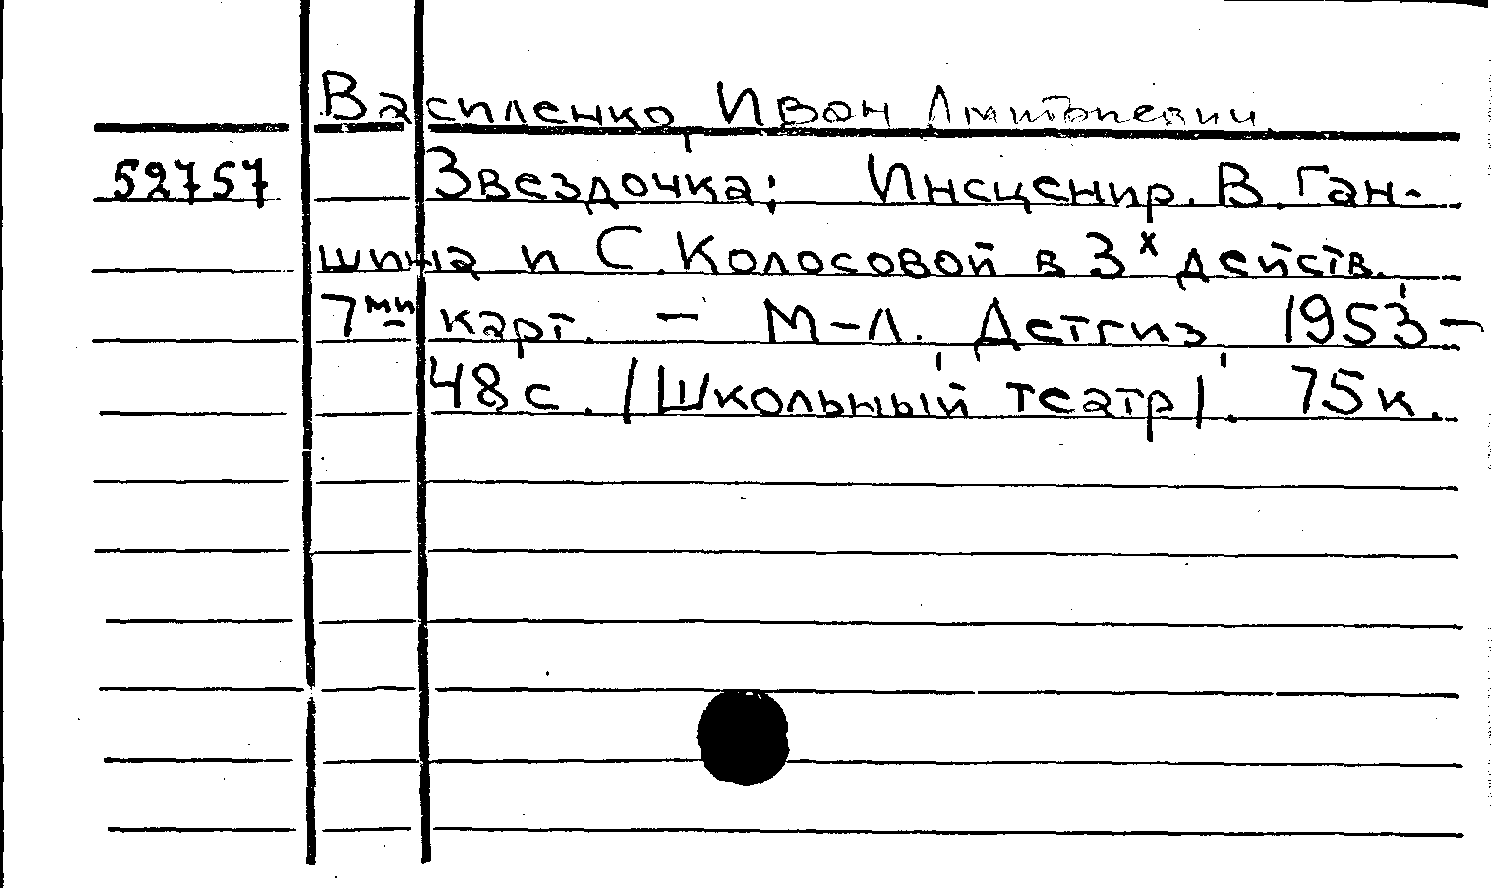 Василенко, Иван Дмитриевич
52757 Звездочка; Инсценир. В. Ган-
шина и С. Колосовой в 3х действ.,
7ми карт. – М-Л., Детгиз, 1953 –
48 с. /Школьный театр/. 75 к.